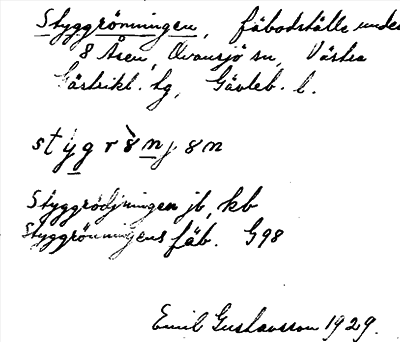 Styggrönningen, fäbodställe under
8 Åsen, Ovansjö sn, Västra
Gästrikl. tg, Gävleb. l.
stygrö̀njen
Styggrödjningen jb, kb
Styggrönningens fäb. G98
Emil Gustavsson 1929.